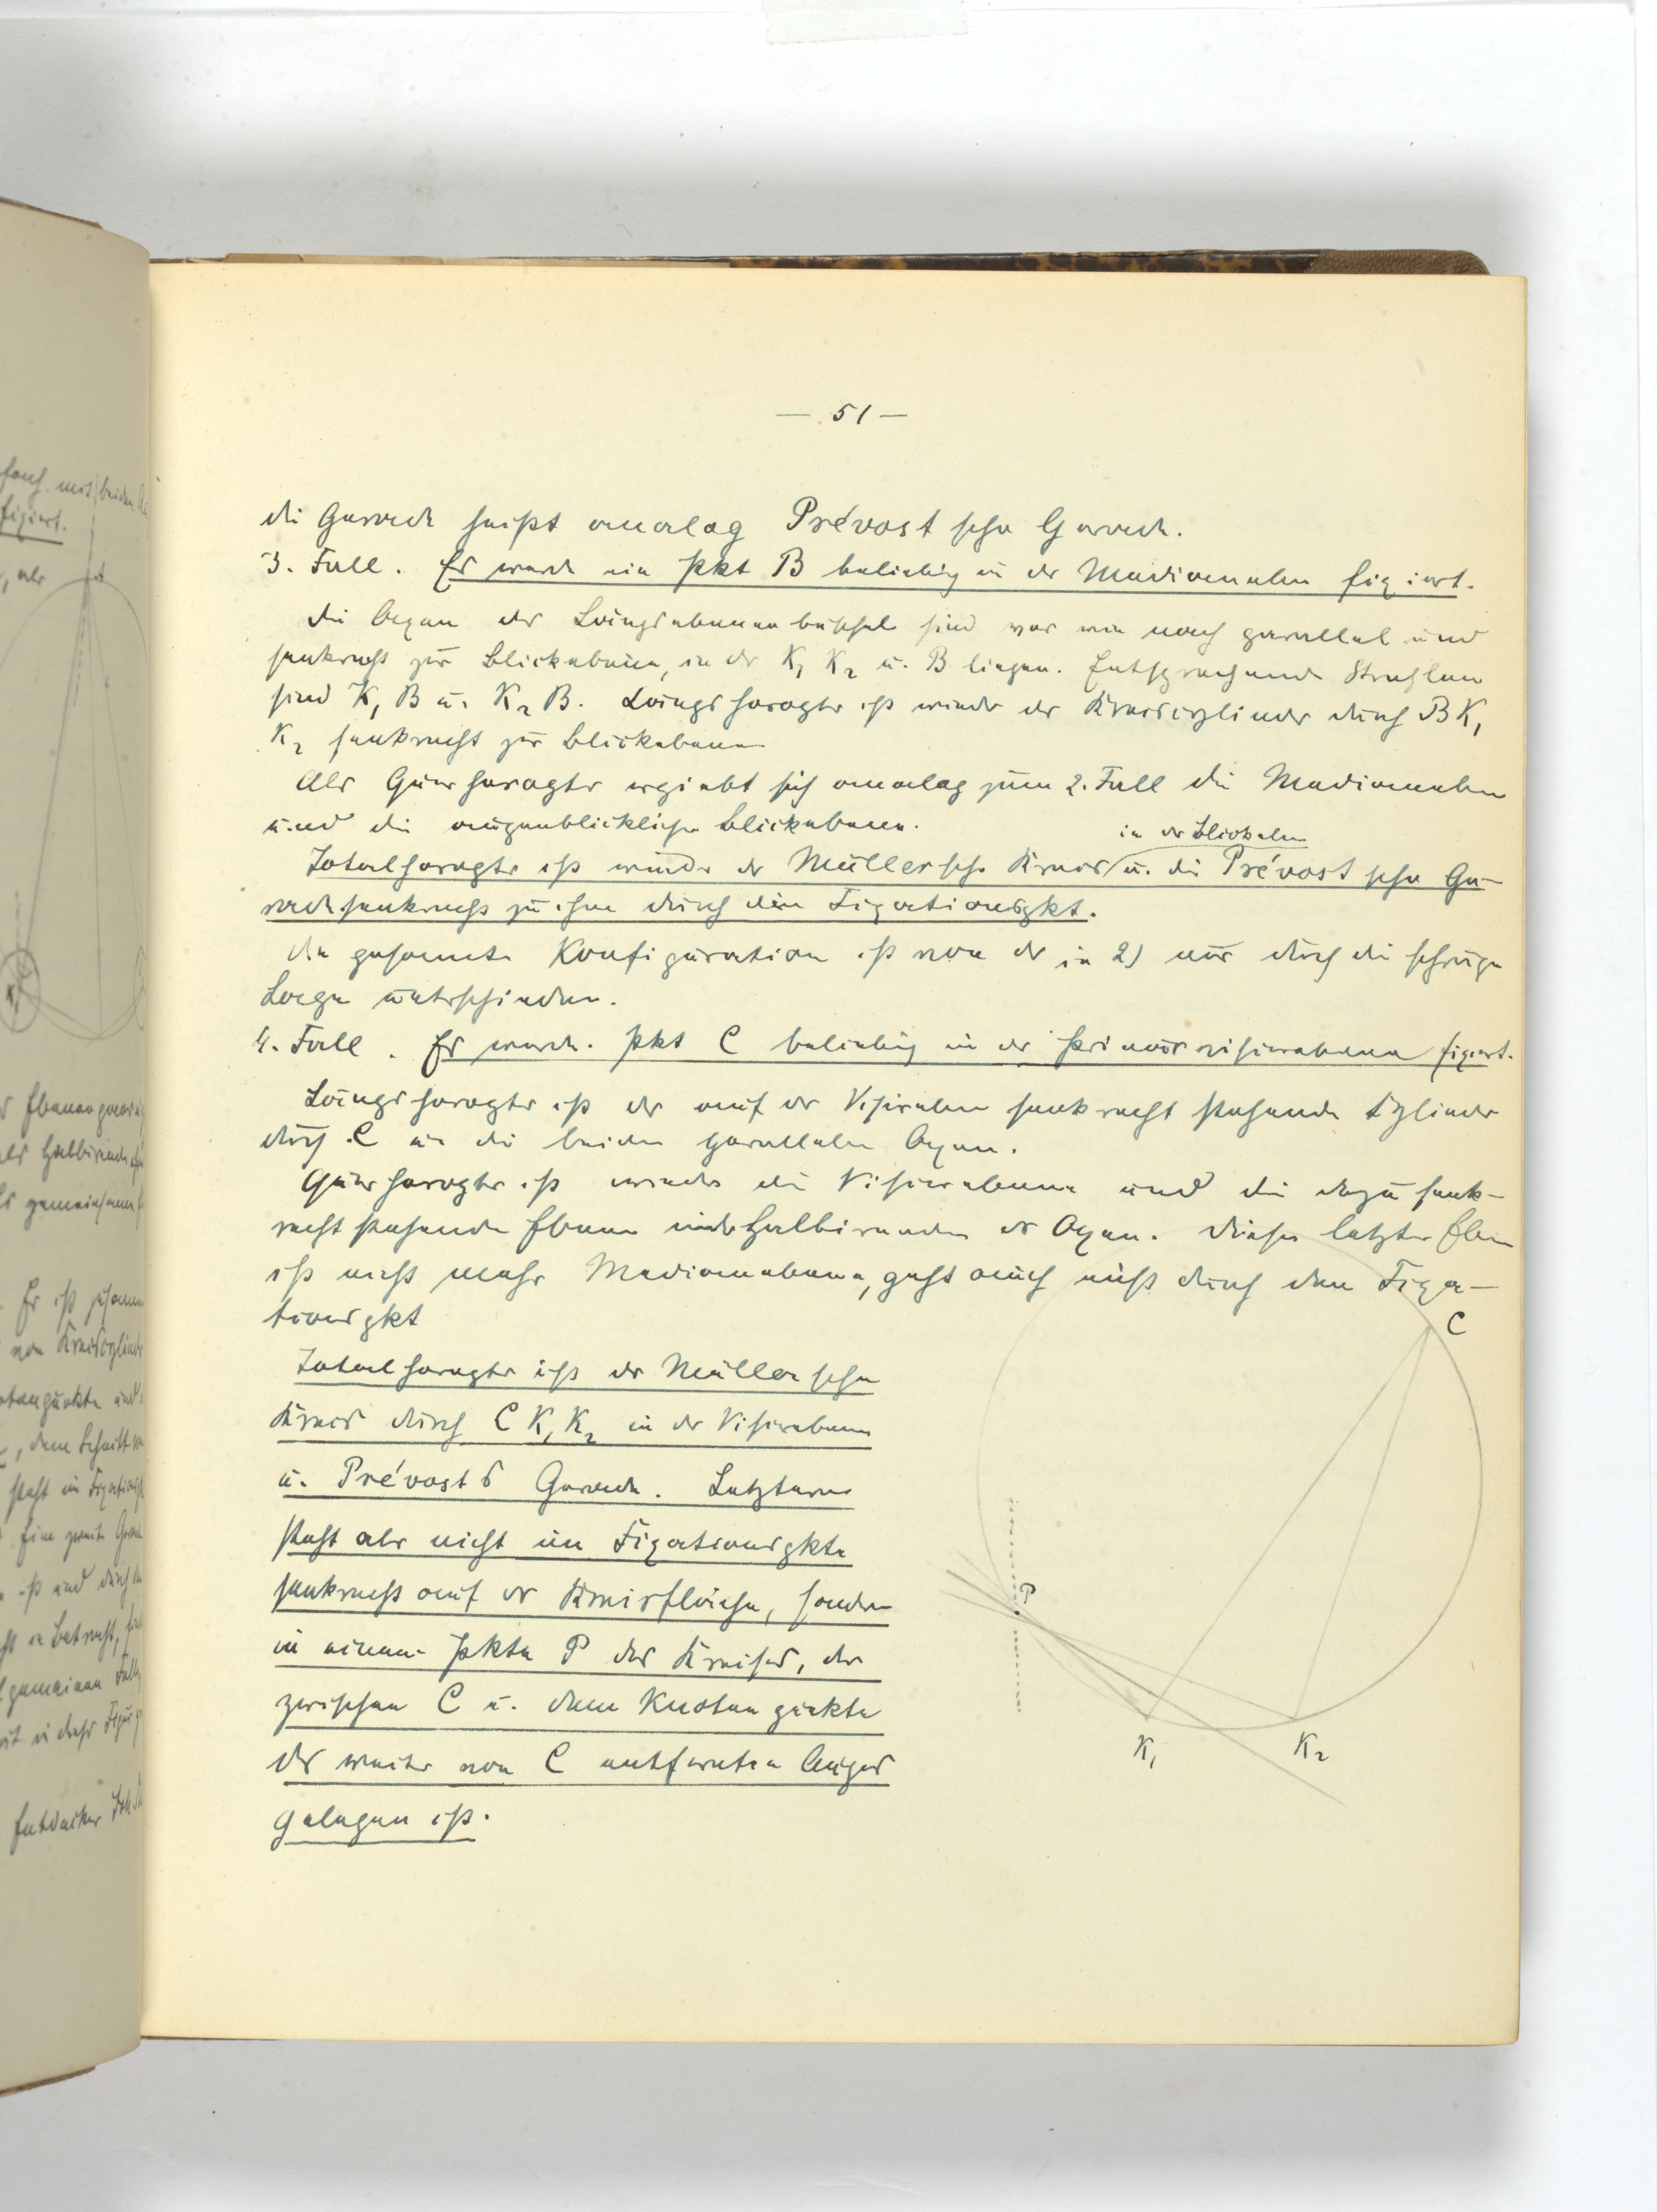 — 51 —
die Gerade heißt analog Prévost'sche Gerade.
3. Fall. Es werde ein Pkt B beliebig in der Medianeben fixiert.
Die Axen der Längsebenenbüschel sind vor wie nach parallel und
senkrecht zur Blickebene, in der K₁ K₂ u. B liegen. Entsprechende Strahlen
sind K₁ B u. K₂ B. Längshoropter ist wieder der Kreiscylinder durch B K₁
K₂ senkrecht zur Blickebene
Als Querhoropter ergiebt sich analog zum 2. Fall die Medianeben
und die augenblickliche Blickebene.
in der Blickeben
Totalhoropter ist wieder der Müllersche Kreis u. die Prévost'sche Ge-
rade senkrecht zu ihm durch den Fixationspkt.
Die gesamte Konfiguration ist von der in 2) nur durch die schräge
Lage unterschieden.
4. Fall. Es werde Pkt C beliebig in der Primärvisierebene fixiert.
Längshoropter ist der auf der Visireben senkrecht stehende Cylinder
durch C u. die beiden parallelen Axen.
Querhoropter ist wieder die Visierebene und die dazu senk-
recht stehende Ebene der Axen. Diese letzte Eben
ist nicht mehr Medianebene, geht auch nicht durch den Fixa-
tionspkt
Totalhoropter ist der Müllersche
Kreis durch C K₁ K₂ in der Visirebene
u. Prévosts Gerade. Letztere
steht aber nicht im Fixationspkte
senkrecht auf der Kreisfläche, sondern
in einem Pkte P des Kreises, der
zwischen C u. dem Knotenpunkte
des weiter von C entfernten Auges
gelegen ist.
C
P
K₁
K₂